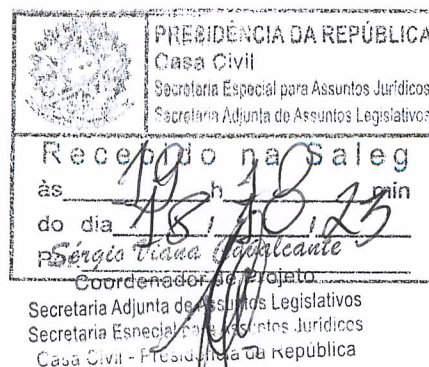 PRESIDÊNCIA DA REPÚBLICA
Casa Civil
Secretaria Especial para Assuntos Jurídicos
Secretaria Adjunta de Assuntos Legislativos
Recebido na Saleg
às 19 h 18 min
do dia 18 / 10 / 23
Sérgio Viana Cavalcante
Coordenador de Projeto
Secretaria Adjunta de Assuntos Legislativos
Secretaria Especial para Assuntos Jurídicos
Casa Civil - Presidência da República